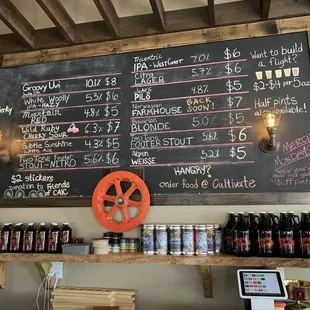 Groovy Uvi 10.1% $8
White Woolly 5.3% $6
Mountain RED 4.8% $7
Wild Ruby Cherry SOUR 6.3% $7
Subtle Ale 4.4% $5
Two Tone Footer NITRO 5.6% $6
$2 stickers
Donation to Friends of CAIC
Eccentric
IPA - West Coast 7.0% $6
Citra
LAGER 5.7% $6
PILS 4.7% $5
Norwegian
FARMHOUSE BACK SOON! $7
BLONDE 5.0% $5
Two Tone
FOOTER STOUT 5.6% $6
Alpen
WEISSE 5.2% $5
HANGRY?
Order food @ Cultivate
Want to build
a flight?
$2-$4 per 5oz
Half pints
available!